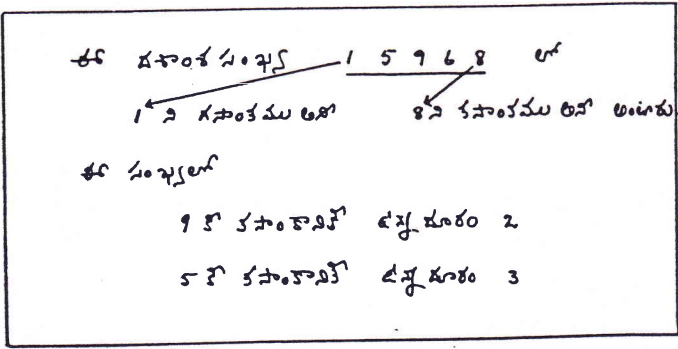 ఈ దశాంశ సంఖ్య 1 5 9 6 8 లో
1 ని గసాంకము అనీ 8 ని కసాంకము అనీ అంటారు
ఈ సంఖ్యలో
9 కీ కసాంకానికీ ఉన్న దూరం 2
5 కీ కసాంకానికీ ఉన్న దూరం 3